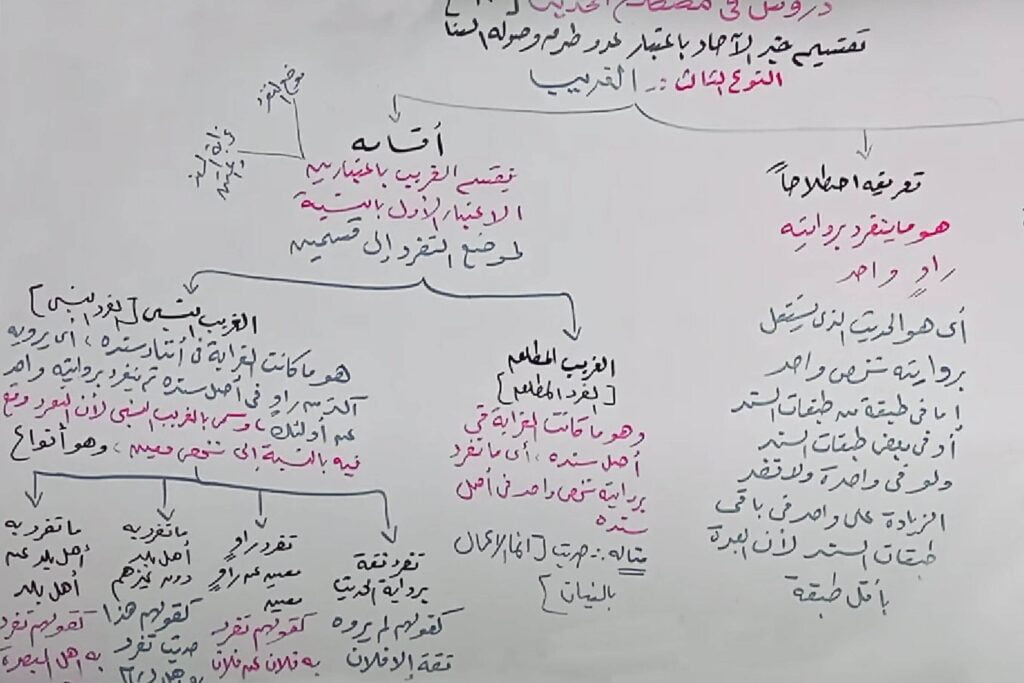 دروس في مصطلح الحديث
تقسيم خبر الآحاد باعتبار عدد طرق وصوله إلينا
النوع الثالث :- الغريب
تعريفه اصطلاحاً
هو ما ينفرد بروايته
راوٍ واحد
أي هو الحديث الذي يستقل
بروايته شخص واحد
إما في طبقة من طبقات السند
أو في بعض طبقات السند
ولو في واحدة ولا تضر
الزيادة على واحد في باقي
طبقات السند لأن العبرة
بأقل طبقة
أقسامه
موضع التفرد
غرابة السند
ينقسم الغريب باعتبارين
الاعتبار الأول بالنسبة
لموضع التفرد إلى قسمين
الغريب المطلق
[الفرد المطلق]
وهو ما كانت الغرابة في
أصل سنده، أي ما تفرد
بروايته شخص واحد في أصل
سنده
مثاله :- حديث [إنما الأعمال
بالنيات]
الغريب النسبي [الفرد النسبي]
هو ما كانت الغرابة في أثناء سنده، أي يرويه
أكثر من راوٍ في أصل سنده ثم ينفرد بروايته واحد
عن أولئك، وسمي بالغريب النسبي لأن التفرد وقع
فيه بالنسبة إلى شخص معين، وهو أنواع
تفرد ثقة
برواية الحديث
كقولهم لم يروه
ثقة إلا فلان
تفرد راوٍ
معين عن راوٍ
معين
كقولهم تفرد
به فلان عن فلان
ما تفرد به
أهل بلد
دون غيرهم
كقولهم هذا
حديث تفرد
ما تفرد به
أهل بلد عن
أهل بلد
كقولهم تفرد
به أهل البصرة